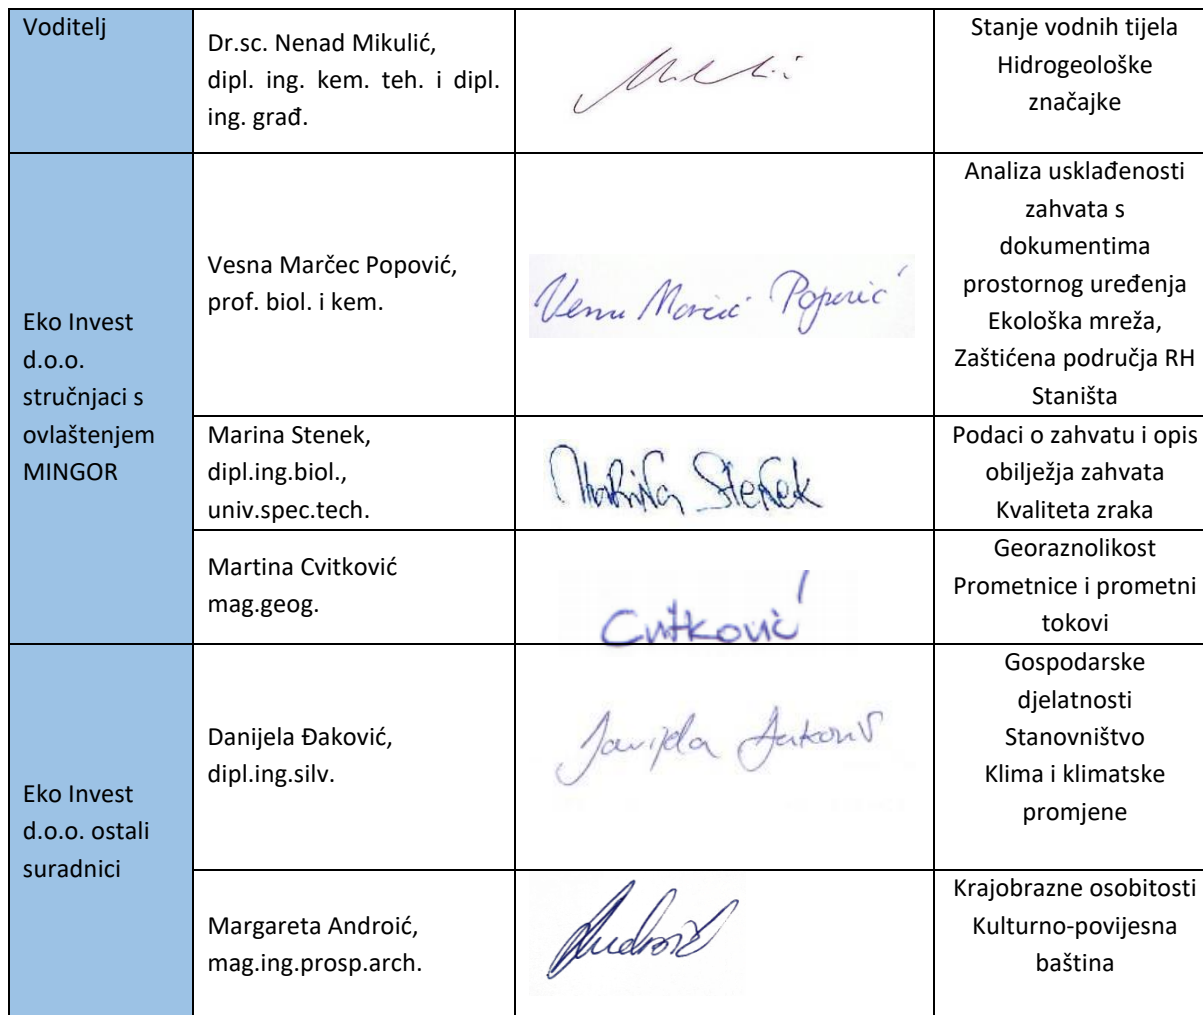 Voditelj
Dr.sc. Nenad Mikulić,
dipl. ing. kem. teh. i dipl.
ing. građ.
Stanje vodnih tijela
Hidrogeološke
značajke
Eko Invest
d.o.o.
stručnjaci s
ovlaštenjem
MINGOR
Vesna Marčec Popović,
prof. biol. i kem.
Popović
Analiza usklađenosti
zahvata s
dokumentima
prostornog uređenja
Ekološka mreža,
Zaštićena područja RH
Staništa
Marina Stenek,
dipl.ing.biol.,
univ.spec.tech.
Marina Stenek
Podaci o zahvatu i opis
obilježja zahvata
Kvaliteta zraka
Martina Cvitković
mag.geog.
Cvitković
Georaznolikost
Prometnice i prometni
tokovi
Eko Invest
d.o.o. ostali
suradnici
Danijela Đaković,
dipl.ing.silv.
Danijela
Gospodarske
djelatnosti
Stanovništvo
Klima i klimatske
promjene
Margareta Androić,
mag.ing.prosp.arch.
Androić
Krajobrazne osobitosti
Kulturno-povijesna
baština